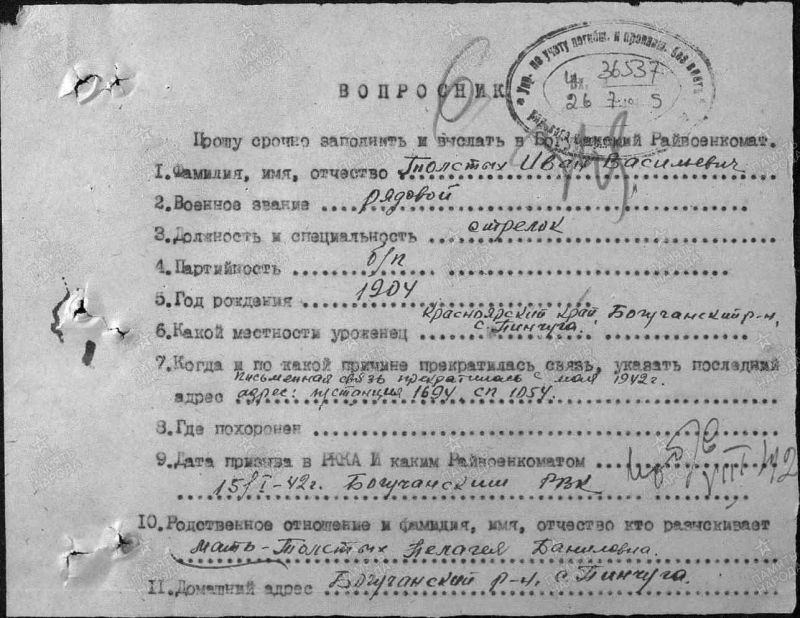 Упр. по учету погибш. и пропавш. без вести
36537
26
5
ВОПРОСНИК
Прошу срочно заполнить и выслать в Богучанский Райвоенкомат.
1.Фамилия, имя, отчество Толстых Иван Васильевич
2.Военное звание рядовой
3.Должность и специальность стрелок
4.Партийность б/п
5.Год рождения 1904
6.Какой местности уроженец Красноярский край, Богучанский р-н,
с. Пинчуга.
7.Когда и по какой причине прекратилась связь, указать последний
Письменная связь прекратилась с мая 1942г.
адрес адрес: п/станция 1694 сп 1054.
8.Где похоронен
9.Дата призыва в РККА И каким Райвоенкоматом
15/I-42г. Богучанским РВК
VIII 42
10.Родственное отношение и фамилия, имя, отчество кто разыскивает
Мать-Толстых Пелагея Даниловна.
11.Домашний адрес Богучанский р-н, с. Пинчуга.